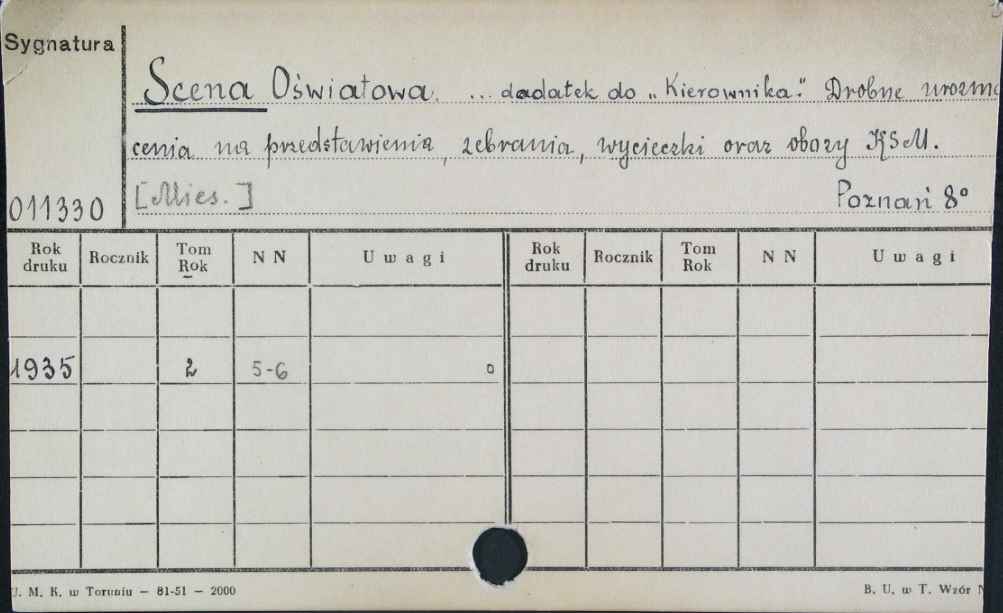 Sygnatura
Scena Oświatowa. ... dodatek do „Kierownika“. Drobne urozma
cenia na przedstawienia, zebrania, wycieczki oraz obozy KSM.
011330 [Mies.] Poznań 8°
Rok druku Rocznik Tom Rok N N Uwagi Rok druku Rocznik Tom Rok N N Uwagi
1935 2 5-6 □
U. M. K. w Toruniu — 81-51 — 2000 B. U. w T. Wzór